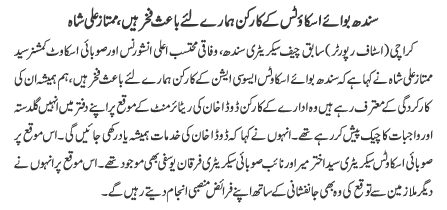 سندھ بوائے اسکاؤٹس کے کارکن ہمارے لئے باعث فخر ہیں، ممتاز علی شاہ
کراچی (اسٹاف رپورٹر) سابق چیف سیکریٹری سندھ، وفاقی محتسب اعلیٰ انشورنس اور صوبائی اسکاوٹ کمشنر سید
ممتاز علی شاہ نے کہا ہے کہ سندھ بوائے اسکاوٹس ایسوسی ایشن کے کارکن ہمارے لئے باعث فخر ہیں، ہم ہمیشہ ان کی
کارکردگی کے معترف رہے ہیں وہ ادارے کے کارکن ڈوڈا خان کی ریٹائرمنٹ کے موقع پر اپنے دفتر میں انہیں گلدستہ
اور واجبات کا چیک پیش کر رہے تھے۔ انہوں نے کہا کہ ڈوڈا خان کی خدمات ہمیشہ یاد رکھی جائیں گی۔ اس موقع پر
صوبائی اسکاوٹس سیکریٹری سید اختر میر اور نائب صوبائی سیکریٹری فرقان یوسفی بھی موجود تھے۔ اس موقع پر انہوں نے
دیگر ملازمین سے توقع کی وہ بھی جانفشانی کے ساتھ اپنے فرائض منصبی انجام دیتے رہیں گے۔